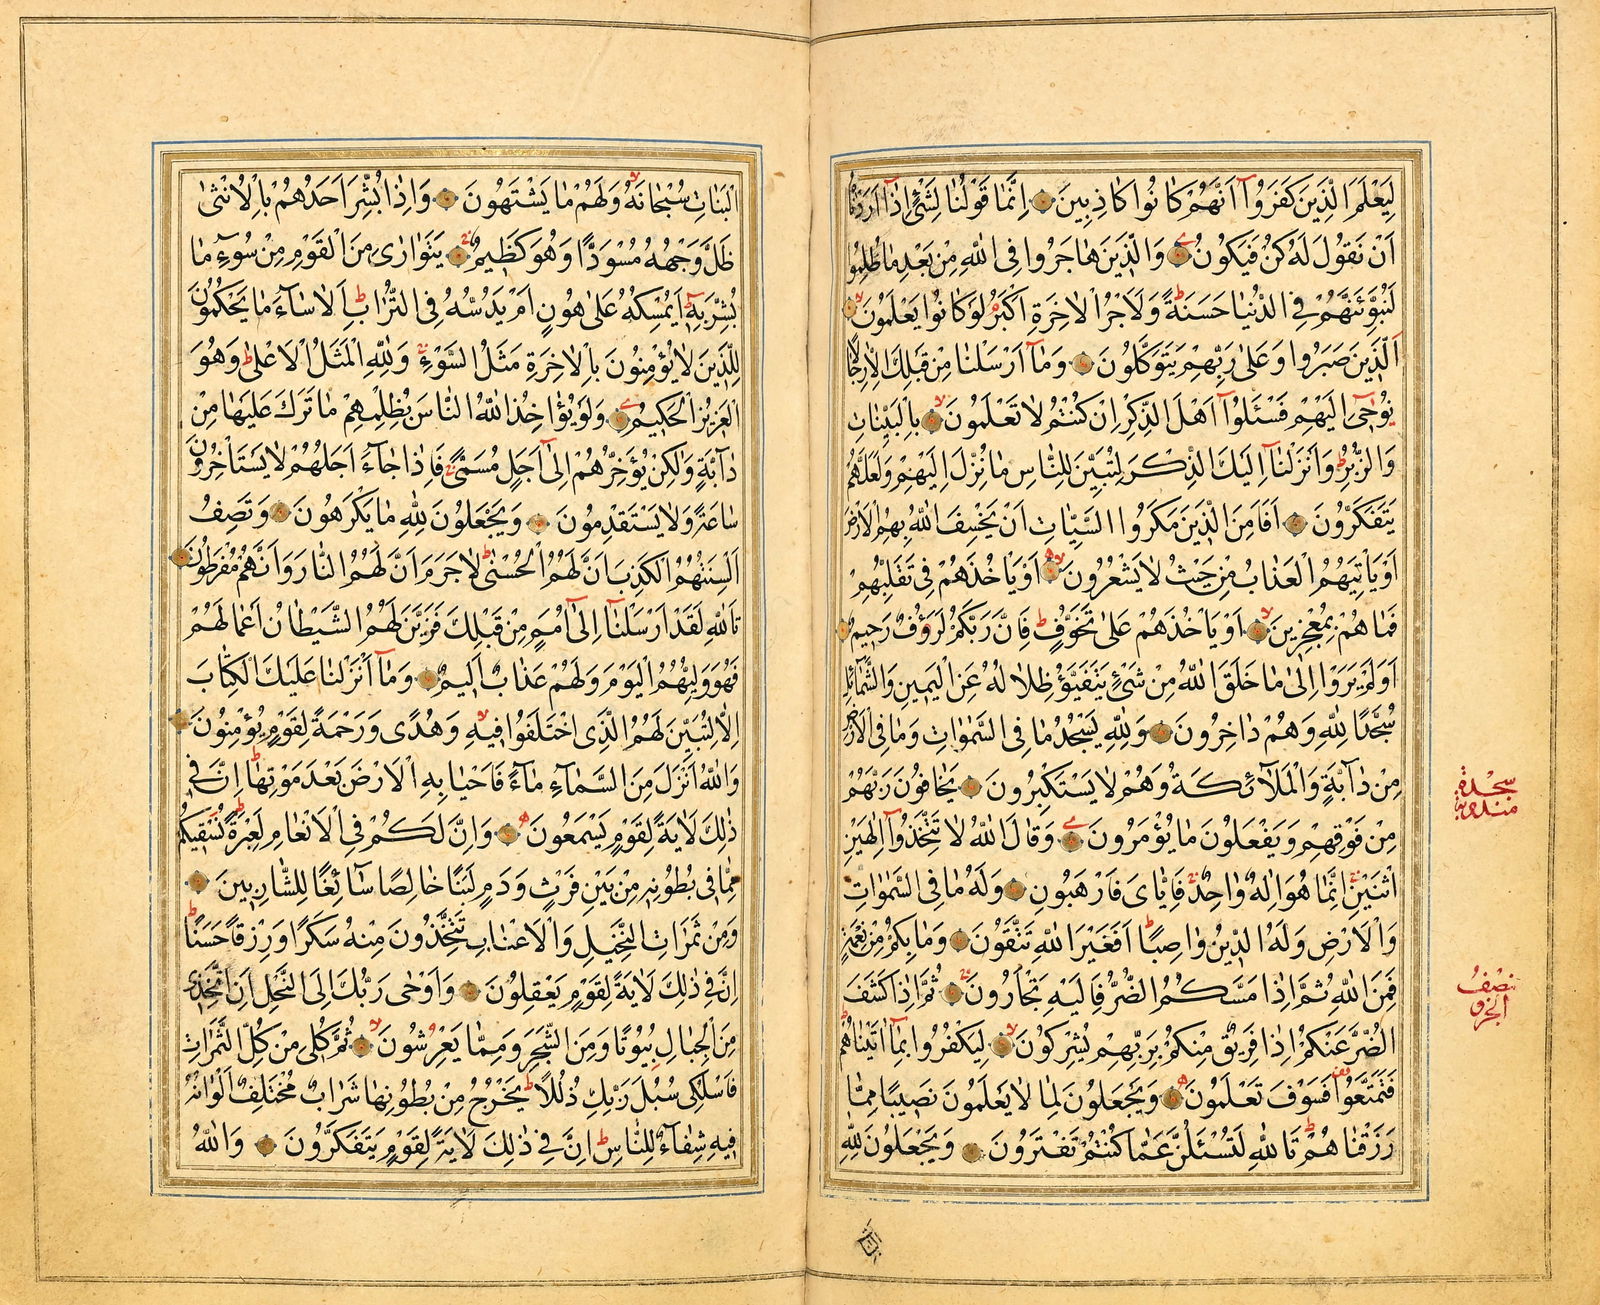 لِيَعْلَمَ الَّذِينَ كَفَرُوا اَنَّهُمْ كَانُوا كَاذِبِينَ اِنَّمَا قَوْلُنَا لِشَىْءٍ اِذَا اَرَدْنَا
اَنْ نَقُولَ لَهُ كُنْ فَيَكُونُ وَالَّذِينَ هَاجَرُوا فِى اللّٰهِ مِنْ بَعْدِ مَا ظُلِمُوا
لَنُبَوِّئَنَّهُمْ فِى الدُّنْيَا حَسَنَةً وَلَاَجْرُ الْاٰخِرَةِ اَكْبَرُ لَوْ كَانُوا يَعْلَمُونَ
اَلَّذِينَ صَبَرُوا وَعَلٰى رَبِّهِمْ يَتَوَكَّلُونَ وَمَا اَرْسَلْنَا مِنْ قَبْلِكَ اِلَّا رِجَالًا
نُوحِى اِلَيْهِمْ فَسْئَلُوا اَهْلَ الذِّكْرِ اِنْ كُنْتُمْ لَا تَعْلَمُونَ بِالْبَيِّنَاتِ
وَالزُّبُرِ وَاَنْزَلْنَا اِلَيْكَ الذِّكْرَ لِتُبَيِّنَ لِلنَّاسِ مَا نُزِّلَ اِلَيْهِمْ وَلَعَلَّهُمْ
يَتَفَكَّرُونَ اَفَاَمِنَ الَّذِينَ مَكَرُوا السَّيِّاٰتِ اَنْ يَخْسِفَ اللّٰهُ بِهِمُ الْاَرْضَ
اَوْ يَاْتِيَهُمُ الْعَذَابُ مِنْ حَيْثُ لَا يَشْعُرُونَ اَوْ يَاْخُذَهُمْ فِى تَقَلُّبِهِمْ
فَمَا هُمْ بِمُعْجِزِينَ اَوْ يَاْخُذَهُمْ عَلٰى تَخَوُّفٍ فَاِنَّ رَبَّكُمْ لَرَؤُفٌ رَحِيمٌ
اَوَلَمْ يَرَوْا اِلٰى مَا خَلَقَ اللّٰهُ مِنْ شَىْءٍ يَتَفَيَّؤُ ظِلَالُهُ عَنِ الْيَمِينِ وَالشَّمَائِلِ
سُجَّدًا لِلّٰهِ وَهُمْ دَاخِرُونَ وَلِلّٰهِ يَسْجُدُ مَا فِى السَّمٰوَاتِ وَمَا فِى الْاَرْضِ
مِنْ دَابَّةٍ وَالْمَلٰئِكَةُ وَهُمْ لَا يَسْتَكْبِرُونَ يَخَافُونَ رَبَّهُمْ
مِنْ فَوْقِهِمْ وَيَفْعَلُونَ مَا يُؤْمَرُونَ وَقَالَ اللّٰهُ لَا تَتَّخِذُوا اِلٰهَيْنِ
اثْنَيْنِ اِنَّمَا هُوَ اِلٰهٌ وَاحِدٌ فَاِيَّاىَ فَارْهَبُونِ وَلَهُ مَا فِى السَّمٰوَاتِ
وَالْاَرْضِ وَلَهُ الدِّينُ وَاصِبًا اَفَغَيْرَ اللّٰهِ تَتَّقُونَ وَمَا بِكُمْ مِنْ نِعْمَةٍ
فَمِنَ اللّٰهِ ثُمَّ اِذَا مَسَّكُمُ الضُّرُّ فَاِلَيْهِ تَجْاَرُونَ ثُمَّ اِذَا كَشَفَ
الضُّرَّ عَنْكُمْ اِذَا فَرِيقٌ مِنْكُمْ بِرَبِّهِمْ يُشْرِكُونَ لِيَكْفُرُوا بِمَا اٰتَيْنَاهُمْ
فَتَمَتَّعُوا فَسَوْفَ تَعْلَمُونَ وَيَجْعَلُونَ لِمَا لَا يَعْلَمُونَ نَصِيبًا مِمَّا
رَزَقْنَاهُمْ تَاللّٰهِ لَتُسْئَلُنَّ عَمَّا كُنْتُمْ تَفْتَرُونَ وَيَجْعَلُونَ لِلّٰهِ
سجدة
مندوبة
نصف
الجزء
الْبَنَاتِ سُبْحَانَهُ وَلَهُمْ مَا يَشْتَهُونَ وَاِذَا بُشِّرَ اَحَدُهُمْ بِالْاُنْثٰى
ظَلَّ وَجْهُهُ مُسْوَدًّا وَهُوَ كَظِيمٌ يَتَوَارٰى مِنَ الْقَوْمِ مِنْ سُوءِ مَا
بُشِّرَ بِهِ اَيُمْسِكُهُ عَلٰى هُونٍ اَمْ يَدُسُّهُ فِى التُّرَابِ اَلَا سَاءَ مَا يَحْكُمُونَ
لِلَّذِينَ لَا يُؤْمِنُونَ بِالْاٰخِرَةِ مَثَلُ السَّوْءِ وَلِلّٰهِ الْمَثَلُ الْاَعْلٰى وَهُوَ
الْعَزِيزُ الْحَكِيمُ وَلَوْ يُؤَاخِذُ اللّٰهُ النَّاسَ بِظُلْمِهِمْ مَا تَرَكَ عَلَيْهَا مِنْ
دَابَّةٍ وَلٰكِنْ يُؤَخِّرُهُمْ اِلٰى اَجَلٍ مُسَمًّى فَاِذَا جَاءَ اَجَلُهُمْ لَا يَسْتَاْخِرُونَ
سَاعَةً وَلَا يَسْتَقْدِمُونَ وَيَجْعَلُونَ لِلّٰهِ مَا يَكْرَهُونَ وَتَصِفُ
اَلْسِنَتُهُمُ الْكَذِبَ اَنَّ لَهُمُ الْحُسْنٰى لَا جَرَمَ اَنَّ لَهُمُ النَّارَ وَاَنَّهُمْ مُفْرَطُونَ
تَاللّٰهِ لَقَدْ اَرْسَلْنَا اِلٰى اُمَمٍ مِنْ قَبْلِكَ فَزَيَّنَ لَهُمُ الشَّيْطَانُ اَعْمَالَهُمْ
فَهُوَ وَلِيُّهُمُ الْيَوْمَ وَلَهُمْ عَذَابٌ اَلِيمٌ وَمَا اَنْزَلْنَا عَلَيْكَ الْكِتَابَ
اِلَّا لِتُبَيِّنَ لَهُمُ الَّذِى اخْتَلَفُوا فِيهِ وَهُدًى وَرَحْمَةً لِقَوْمٍ يُؤْمِنُونَ
وَاللّٰهُ اَنْزَلَ مِنَ السَّمَاءِ مَاءً فَاَحْيَا بِهِ الْاَرْضَ بَعْدَ مَوْتِهَا اِنَّ فِى
ذٰلِكَ لَاٰيَةً لِقَوْمٍ يَسْمَعُونَ وَاِنَّ لَكُمْ فِى الْاَنْعَامِ لَعِبْرَةً نُسْقِيكُمْ
مِمَّا فِى بُطُونِهِ مِنْ بَيْنِ فَرْثٍ وَدَمٍ لَبَنًا خَالِصًا سَائِغًا لِلشَّارِبِينَ
وَمِنْ ثَمَرَاتِ النَّخِيلِ وَالْاَعْنَابِ تَتَّخِذُونَ مِنْهُ سَكَرًا وَرِزْقًا حَسَنًا
اِنَّ فِى ذٰلِكَ لَاٰيَةً لِقَوْمٍ يَعْقِلُونَ وَاَوْحٰى رَبُّكَ اِلَى النَّحْلِ اَنِ اتَّخِذِى
مِنَ الْجِبَالِ بُيُوتًا وَمِنَ الشَّجَرِ وَمِمَّا يَعْرِشُونَ ثُمَّ كُلِى مِنْ كُلِّ الثَّمَرَاتِ
فَاسْلُكِى سُبُلَ رَبِّكِ ذُلُلًا يَخْرُجُ مِنْ بُطُونِهَا شَرَابٌ مُخْتَلِفٌ اَلْوَانُهُ
فِيهِ شِفَاءٌ لِلنَّاسِ اِنَّ فِى ذٰلِكَ لَاٰيَةً لِقَوْمٍ يَتَفَكَّرُونَ وَاللّٰهُ